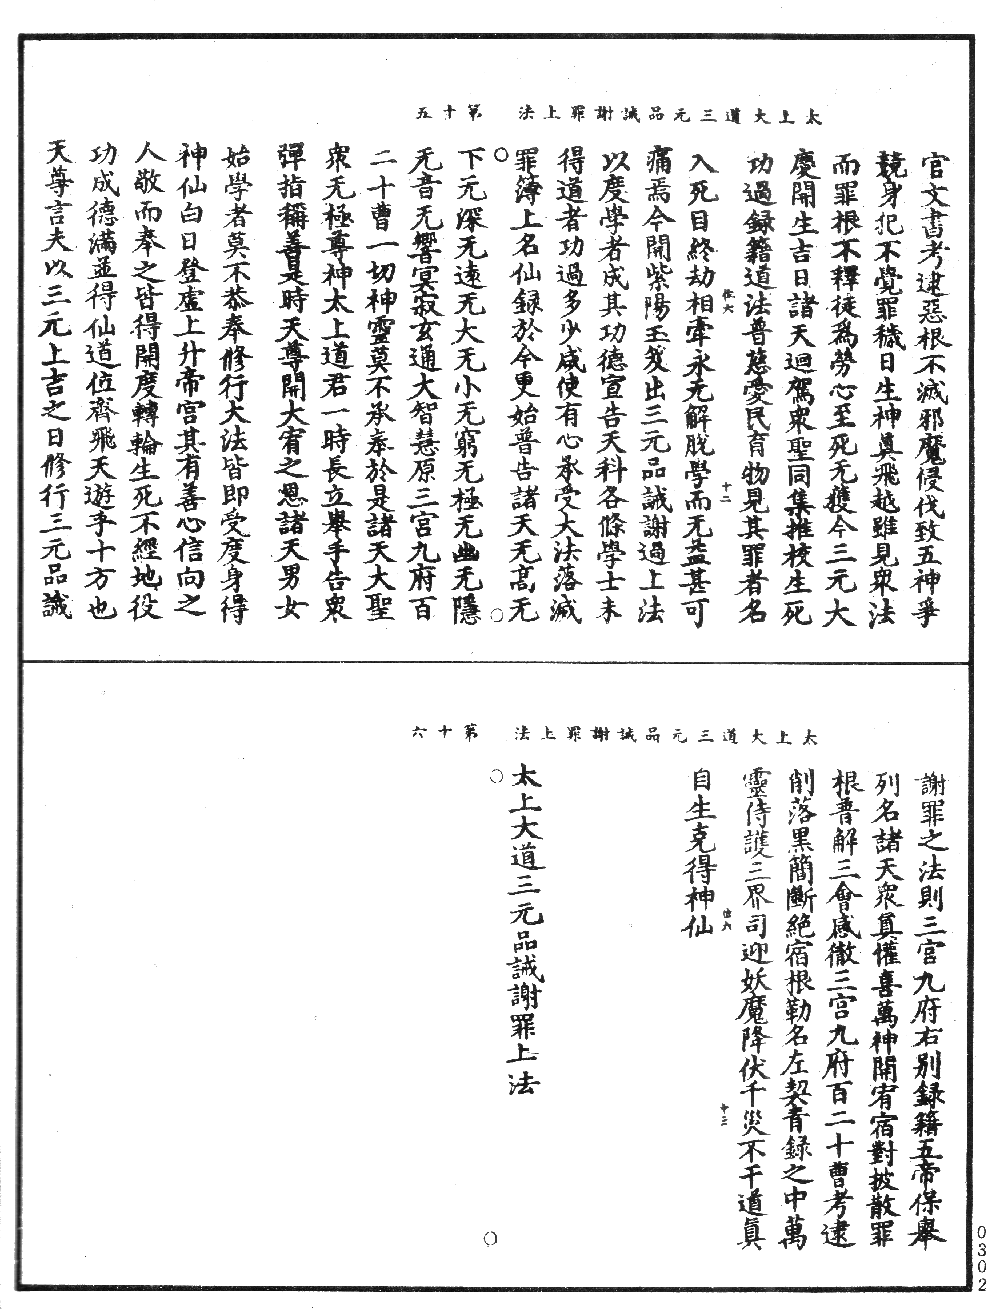 太上大道三元品誡謝罪上法　第十五
官文書考逮惡根不滅邪魔侵伐致五神爭
競身犯不覺罪穢日生神眞飛越雖見衆法
而罪根不釋徒爲勞心至死无獲今三元大
慶開生吉日諸天迴駕衆聖同集推校生死
功過録籍道法普慈愛民育物見其罪者名
十二
入死目終劫相牽永无解脫學而无益甚可
痛焉今開紫陽玉笈出三元品誡謝過上法
以度學者成其功德宣告天科各條學士未
得道者功過多少咸使有心承受大法落滅
罪簿上名仙録於今更始普告諸天无高无
下无深无遠无大无小无窮无極无幽无隱
无音无響冥寂玄通大智慧原三宮九府百
二十曹一切神靈莫不承奉於是諸天大聖
衆无極尊神太上道君一時長立舉手告衆
彈指稱善是時天尊開大宥之恩諸天男女
始學者莫不恭奉修行大法皆即受度身得
神仙白日登虛上升帝宮其有善心信向之
人敬而奉之皆得開度轉輪生死不經地役
功成德滿並得仙道位齊飛天遊乎十方也
天尊言夫以三元上吉之日修行三元品誡
太上大道三元品誡謝罪上法　第十六
謝罪之法則三官九府右別録籍五帝保舉
列名諸天衆眞懽喜萬神開宥宿對披散罪
根普解三會感徹三宮九府百二十曹考逮
削落黑簡斷絕宿根勒名左契青録之中萬
靈侍護三界司迎妖魔降伏千災不干道眞
十三
自生克得神仙
太上大道三元品誡謝罪上法
0302